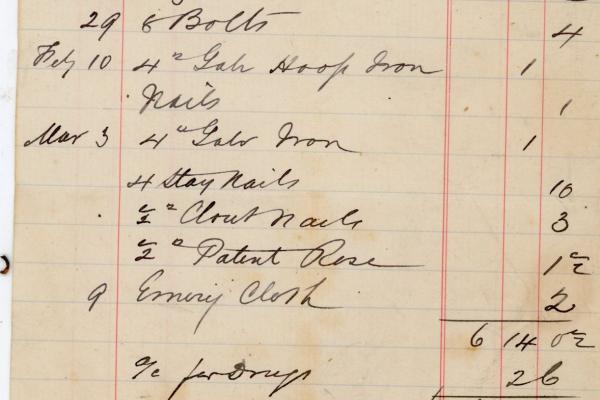 29 8 Bolts 4
Feby 10 4" Galv Hoop Iron 1
Nails 1
Mar 3 4" Galv Iron 1
4 Stay Nails 10
½" Clout Nails 3
½" Patent Rose 1½
9 Emery Cloth 2
6 14 0½
a/c for Drugs 2 6